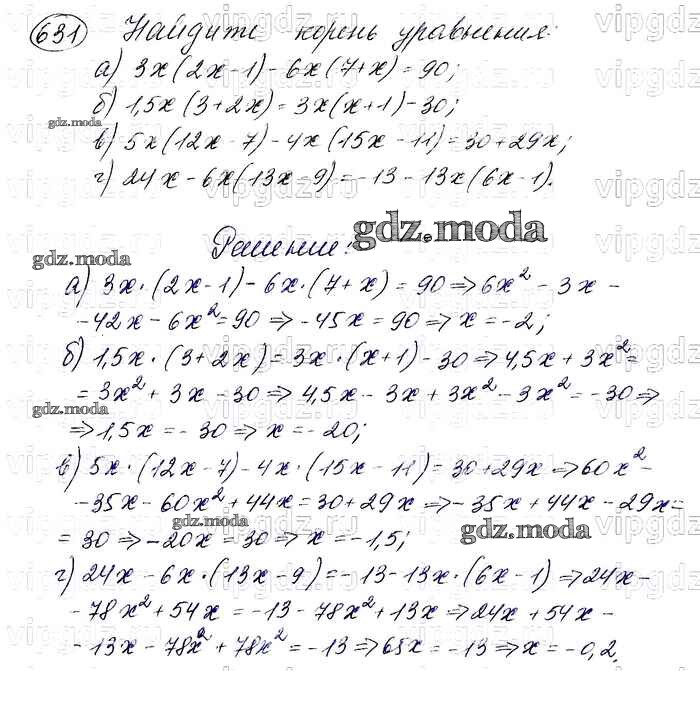 631 Найдите корень уравнения:
а) 3x(2x-1)-6x(7+x)=90;
б) 1,5x(3+2x)=3x(x+1)-30;
gdz.moda
в) 5x(12x-7)-4x(15x-11)=30+29x;
г) 24x-6x(13x-9)=-13-13x(6x-1).
gdz.moda
Решение:
gdz.moda
а) 3x·(2x-1)-6x·(7+x)=90⇒6x²-3x-
-42x-6x²=90⇒-45x=90⇒x=-2;
б) 1,5x·(3+2x)=3x·(x+1)-30⇒4,5x+3x²=
=3x²+3x-30⇒4,5x-3x+3x²-3x²=-30⇒
gdz.moda
⇒1,5x=-30⇒x=-20;
в) 5x·(12x-7)-4x·(15x-11)=30+29x⇒60x²-
-35x-60x²+44x=30+29x⇒-35x+44x-29x=
gdz.moda
gdz.moda
=30⇒-20x=30⇒x=-1,5;
г) 24x-6x·(13x-9)=-13-13x·(6x-1)⇒24x-
-78x²+54x=-13-78x²+13x⇒24x+54x-
-13x-78x²+78x²=-13⇒65x=-13⇒x=-0,2.